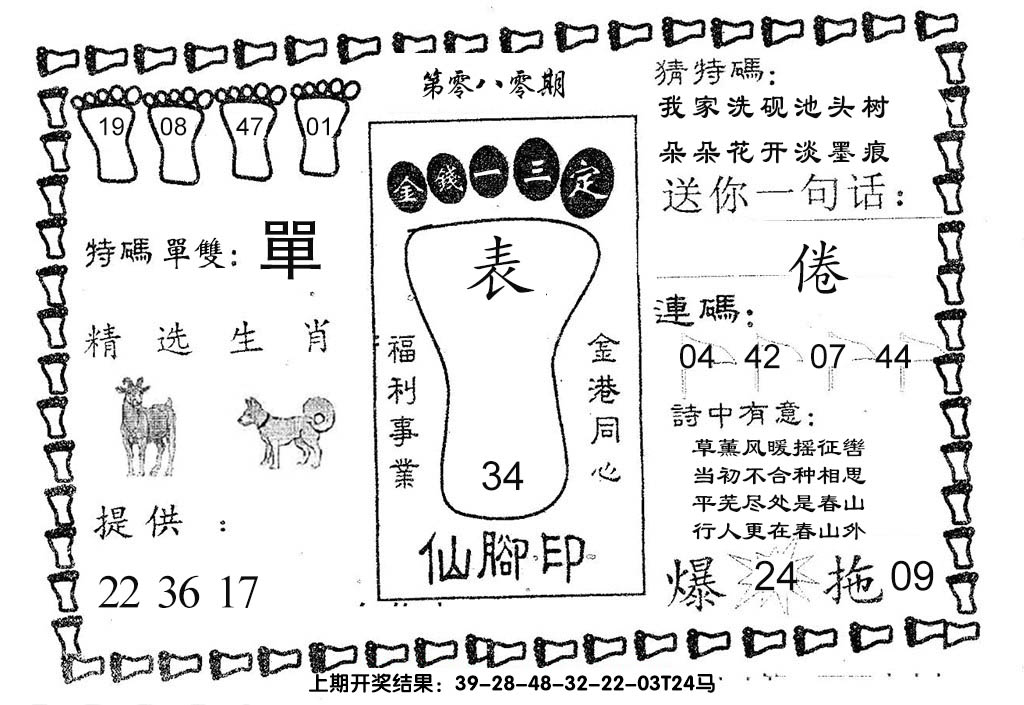 第零八零期
19 08 47 01
特碼單雙：單
精选生肖
提供：
22 36 17
金錢一三定
表
34
福利事業
金港同心
仙腳印
猜特碼：
我家洗砚池头树
朵朵花开淡墨痕
送你一句话：
倦
連碼：
04 42 07 44
詩中有意：
草薰风暖摇征辔
当初不合种相思
平芜尽处是春山
行人更在春山外
爆 24 拖 09
上期开奖结果：39-28-48-32-22-03T24马